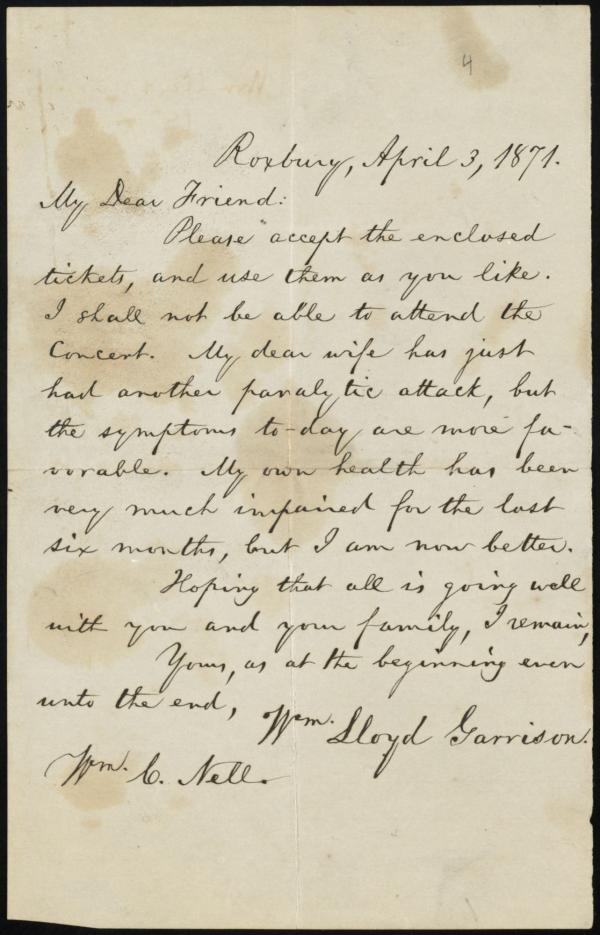 4
Roxbury, April 3, 1871.
My Dear Friend:
Please accept the enclosed
tickets, and use them as you like.
I shall not be able to attend the
Concert. My dear wife has just
had another paralytic attack, but
the symptoms to-day are more fa-
vorable. My own health has been
very much impaired for the last
six months, but I am now better.
Hoping that all is going well
with you and your family, I remain,
Yours, as at the beginning even
unto the end,
Wm. Lloyd Garrison.
Wm. C. Nell.